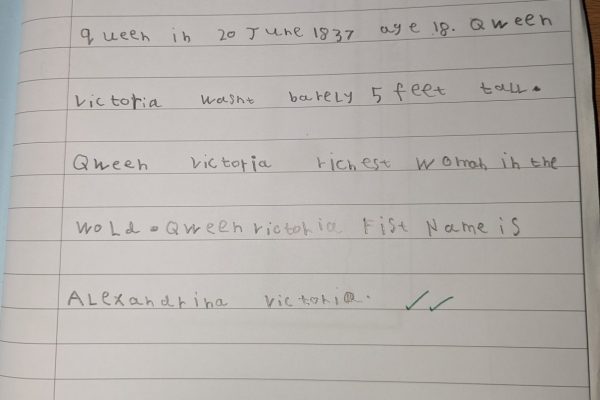 queen in 20 June 1837 age 18. Qween
victoria wasnt barely 5 feet tall.
Qween victoria richest woman in the
wold. Qween victoria Fist Name is
Alexandrina victoria.